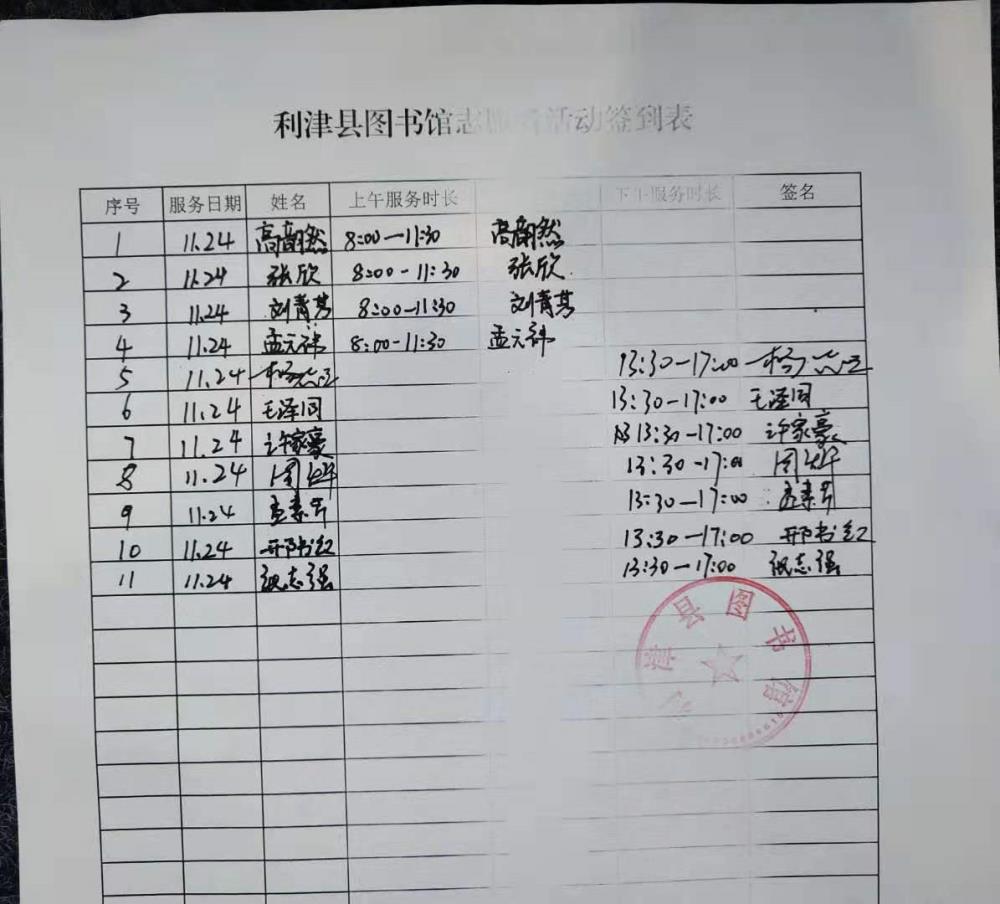 利津县图书馆志愿者活动签到表
序号 服务日期 姓名 上午服务时长 下午服务时长 签名
1 11.24 高韵然 8:00—11:30 高韵然
2 11.24 张欣 8:00-11:30 张欣
3 11.24 刘青 8:00-11:30 刘青
4 11.24 孟元 8:00-11:30 孟元
5 11.24 杨 13:30-17:00 杨
6 11.24 毛泽同 13:30-17:00 毛泽同
7 11.24 许家豪 13:30-17:00 许家豪
8 11.24 周 13:30-17:00 周
9 11.24 孟 13:30—17:00 孟
10 11.24 邢书红 13:30-17:00 邢书红
11 11.24 张志强 13:30—17:00 张志强
津县图书馆